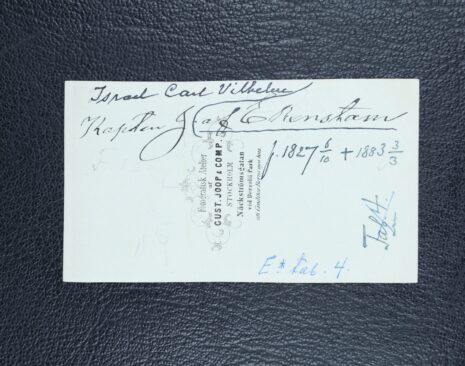 Israel Carl Vilhelm
Kapten J af Ekenstam
f. 1827 6/10 + 1883 3/3
Fotografisk Atelier
af
GUST. JOOP & COMP.
STOCKHOLM
Näckströmsgatan
vid Berzelii Park
Tab 4.
E* tab. 4.